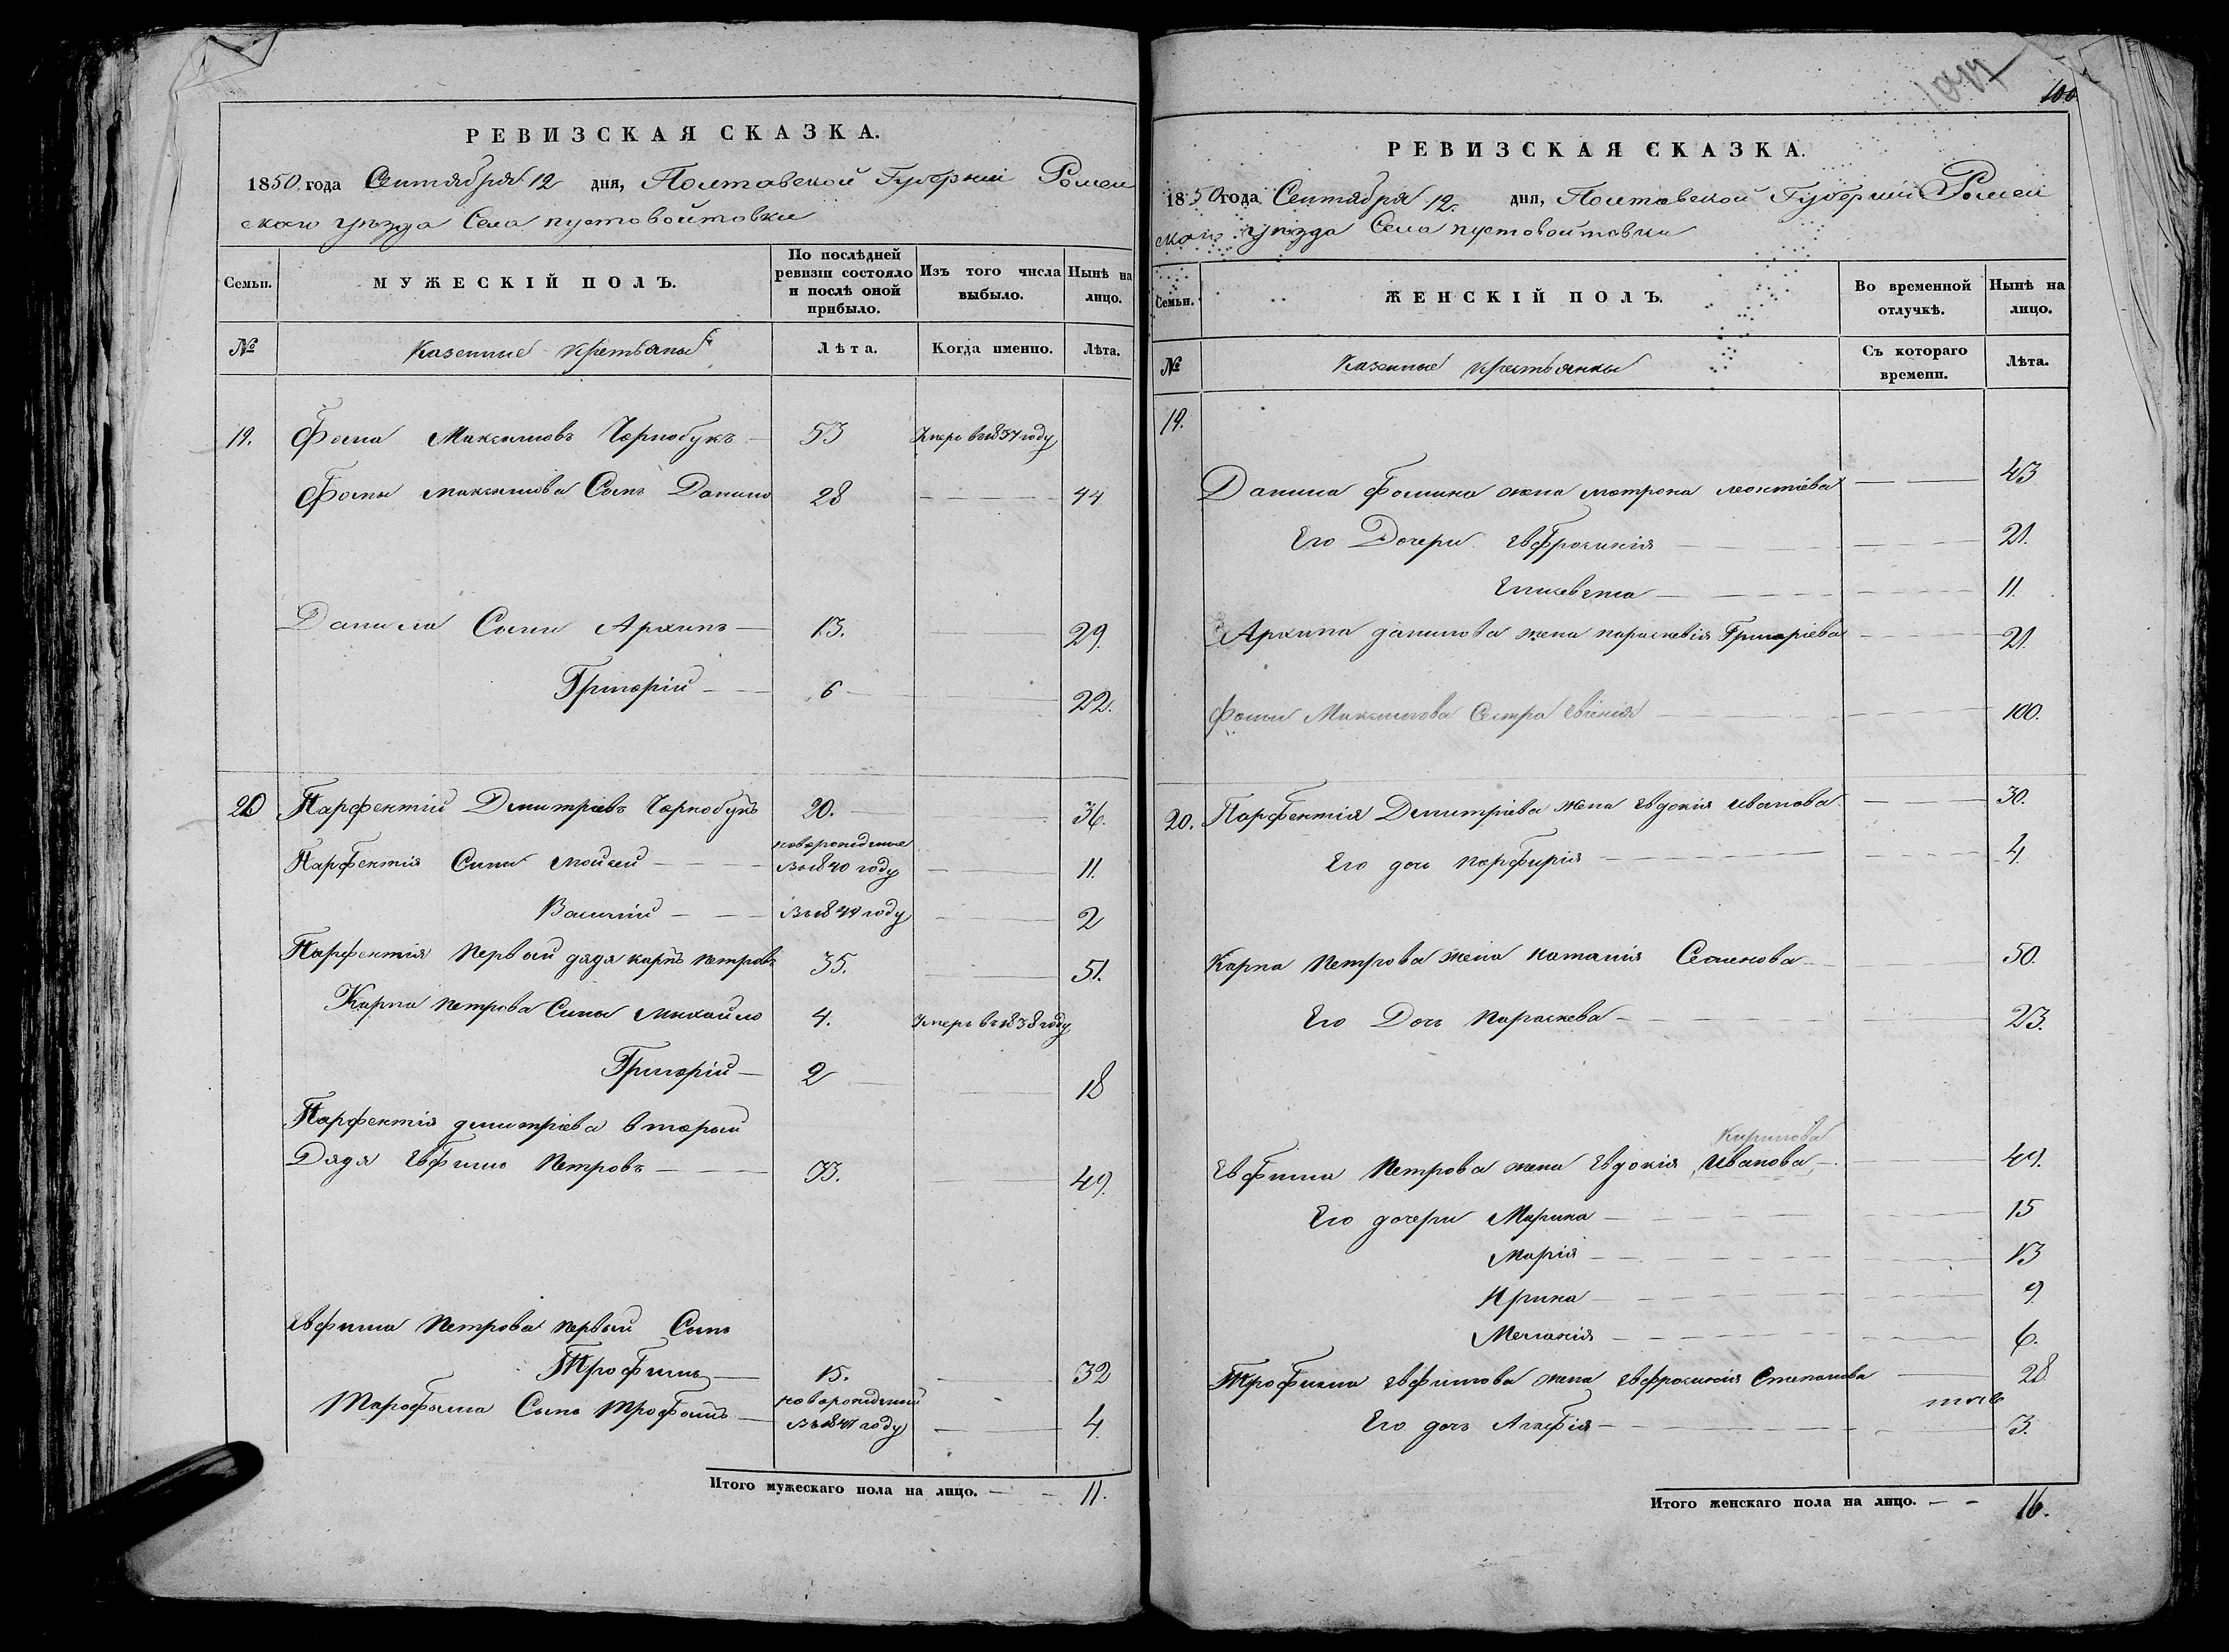 РЕВИЗСКАЯ СКАЗКА.
1850 года Сентября 12 дня, Полтавской Губернии Ромен
скаго уѣзда Села пустовойтовки
Семьи. МУЖЕСКІЙ ПОЛЪ. По послѣдней ревизіи состояло и послѣ оной прибыло. Изъ того числа выбыло. Нынѣ на лицо.
№ Казенные крестьяны Лѣта. Когда именно. Лѣта.
19. Фома Максимовъ Чорнобукъ 53 Умеръ въ 1837 году
Фомы максимова Сынъ Данило 28 44
Данила Сыны Архипъ 13. 29.
Григорій 6 22.
20 Парфентій Дмитріевъ Чорнобукъ 20. 36.
новорожденые
Парфентія Сыны моисей въ 1840 году 11.
Василій въ 1848 году 2
Парфентія первый дядя карпъ петровъ 35. 51.
Карпа петрова Сыны михайло 4. Умеръ въ 1838 году
Григорій 2 18
Парфентія дмитріева вторый
Дядя Евфимъ Петровъ 33. 49.
Евфима Петрова первый Сынъ
Трофимъ 15. 32
новорожденый
Трофыма Сынъ Трофымъ въ 1847 году 4.
Итого мужескаго пола на лицо. 11.
100
РЕВИЗСКАЯ СКАЗКА.
1850 года Сентября 12. дня, Полтавской Губерніи Ромен
скаго уѣзда Села пустовойтовки
Семьи. ЖЕНСКІЙ ПОЛЪ. Во временной отлучкѣ. Нынѣ на лицо.
№ Казенные крестьянки Съ котораго времени. Лѣта.
19.
Данила Фомина жена матрона леонтіева 43
Его Дочери Евфросинія 21.
Елисавета 11.
Архипа данилова жена параскевія Григоріева 21.
Фомы Максимова Сестра 100.
20. Парфентія Дмитріева жена Евдокія иванова 30.
Его дочь порфирія 4.
Карпа Петрова жена наталія Семенова 50.
Его Дочь параскева 23.
Кирилова
Евфима Петрова жена Евдокія Иванова 49.
Его дочери Марина 15
Марія 13
Ирина 9.
Меланія 6.
Трофима Евфимова жена Евфросинія Степанова 28.
Его дочь Агафія 3.
Итого женскаго пола на лицо. 16.